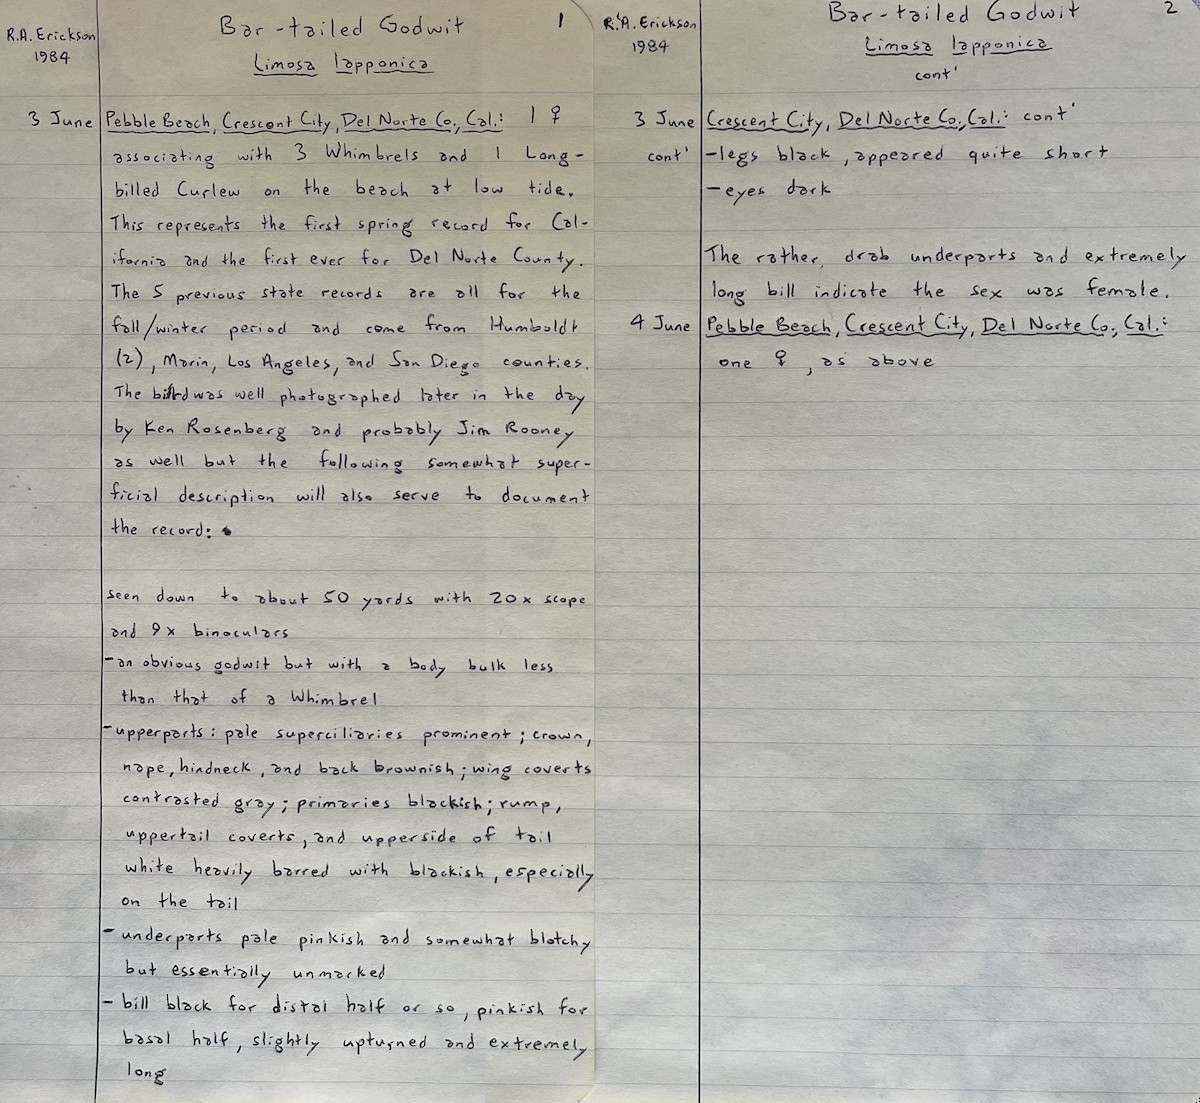 R.A. Erickson
1984
Bar-tailed Godwit
1
Limosa lapponica
3 June
Pebble Beach, Crescent City, Del Norte Co., Cal.: 1 ♀
associating with 3 Whimbrels and 1 Long-
billed Curlew on the beach at low tide.
This represents the first spring record for Cal-
ifornia and the first ever for Del Norte County.
The 5 previous state records are all for the
fall/winter period and come from Humboldt
(2), Marin, Los Angeles, and San Diego counties.
The bird was well photographed later in the day
by Ken Rosenberg and probably Jim Rooney
as well but the following somewhat super-
ficial description will also serve to document
the record:
seen down to about 50 yards with 20x scope
and 9x binoculars
-an obvious godwit but with a body bulk less
than that of a Whimbrel
-upperparts: pale superciliaries prominent; crown,
nape, hindneck, and back brownish; wing coverts
contrasted gray; primaries blackish; rump,
uppertail coverts, and upperside of tail
white heavily barred with blackish, especially
on the tail
-underparts pale pinkish and somewhat blotchy
but essentially unmarked
-bill black for distal half or so, pinkish for
basal half, slightly upturned and extremely
long
R.A. Erickson
1984
Bar-tailed Godwit
2
Limosa lapponica
cont'
3 June
cont'
Crescent City, Del Norte Co., Cal.: cont'
-legs black, appeared quite short
-eyes dark
The rather drab underparts and extremely
long bill indicate the sex was female.
4 June
Pebble Beach, Crescent City, Del Norte Co., Cal.:
one ♀, as above